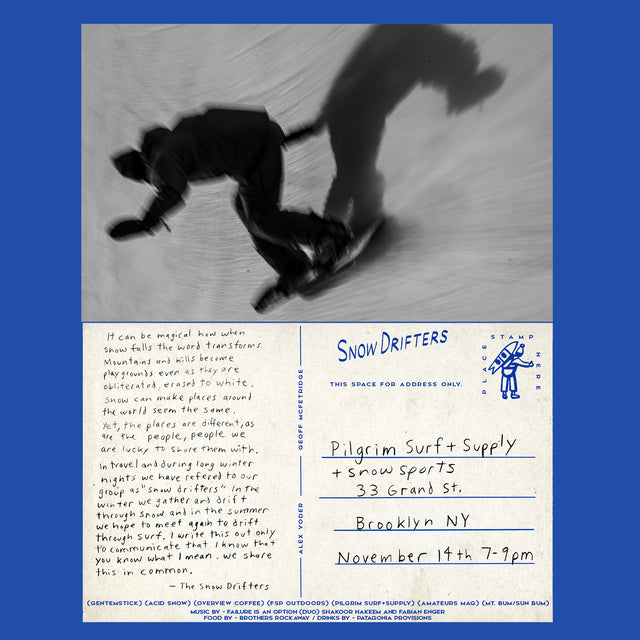 It can be magical how when
snow falls the word transforms
Mountains and hills become
playgrounds even as they are
obliterated, erased to white.
Snow can make places around
the world seem the same.
Yet, the places are different, as
are the people, people we
are lucky to share them with.
In travel and during long winter
nights we have refered to our
group as "snow drifters" In the
winter we gather and drift
through snow and in the summer
we hope to meet again to drift
through surf. I write this out only
to communicate that I know that
you know what I mean. we share
this in common.
- The Snow Drifters
GEOFF MCFETRIDGE
ALEX YODER
SNOW DRIFTERS
THIS SPACE FOR ADDRESS ONLY.
PLACE STAMP HERE
Pilgrim Surf + Supply
+ snow sports
33 Grand St.
Brooklyn NY
November 14th 7-9pm
(GENTEMSTICK) (ACID SNOW) (OVERVIEW COFFEE) (FSP OUTDOORS) (PILGRIM SURF+SUPPLY) (AMATEURS MAG) (MT. BUM/SUN BUM)
MUSIC BY - FAILURE IS AN OPTION (DUO) SHAKOOR HAKEEM AND FABIAN ENGER
FOOD BY - BROTHERS ROCKAWAY / DRINKS BY - PATAGONIA PROVISIONS